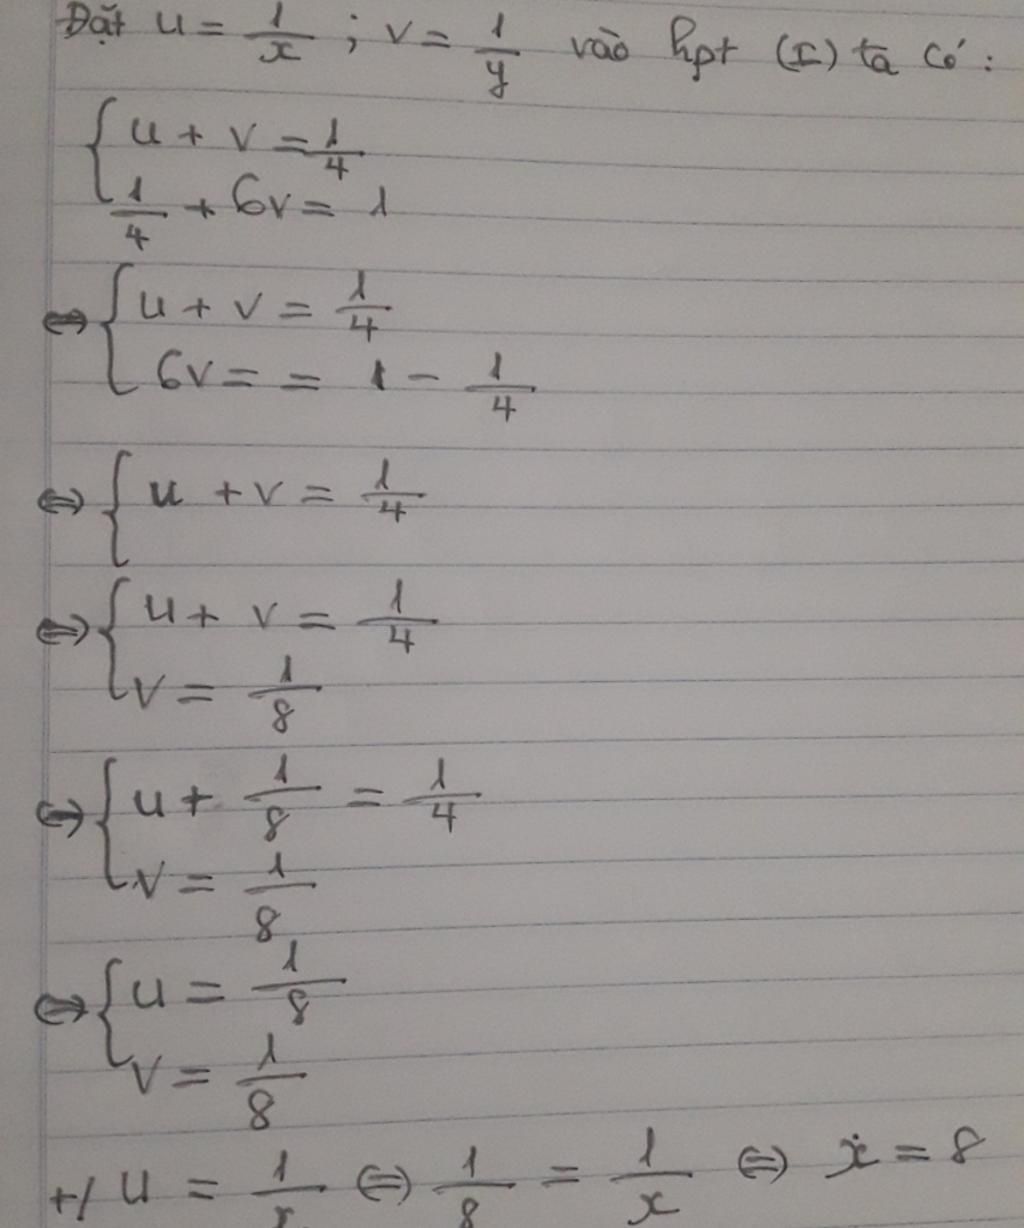 Đặt u = 1/x ; v = 1/y vào hpt (I) ta có :
{ u + v = 1/4
1/4 + 6v = 1
⇔ { u + v = 1/4
6v = = 1 - 1/4
⇔ { u + v = 1/4
⇔ { u + v = 1/4
v = 1/8
⇔ { u + 1/8 = 1/4
v = 1/8
⇔ { u = 1/8
v = 1/8
+/ u = 1/x ⇔ 1/8 = 1/x ⇔ x = 8